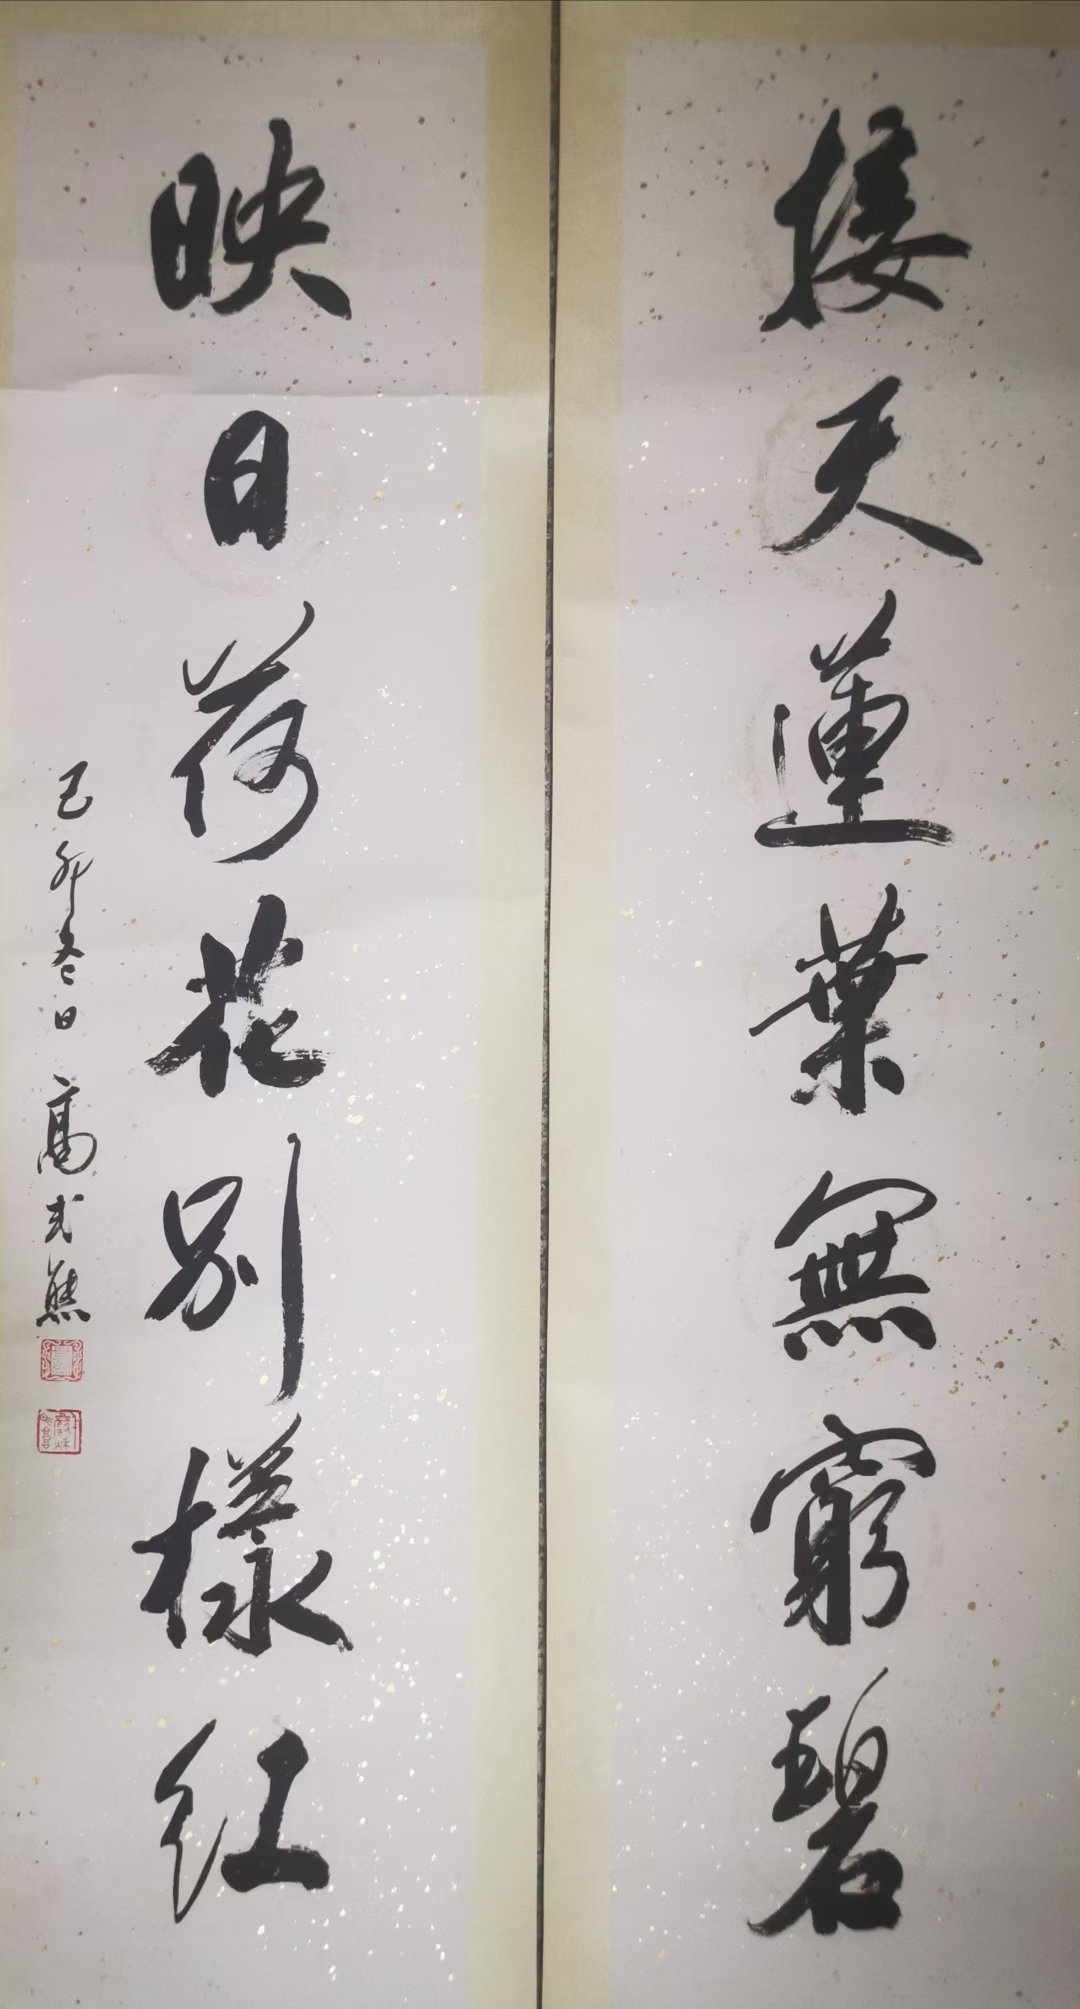 接天蓮葉無窮碧
映日荷花別樣红
己卯冬日 高式熊